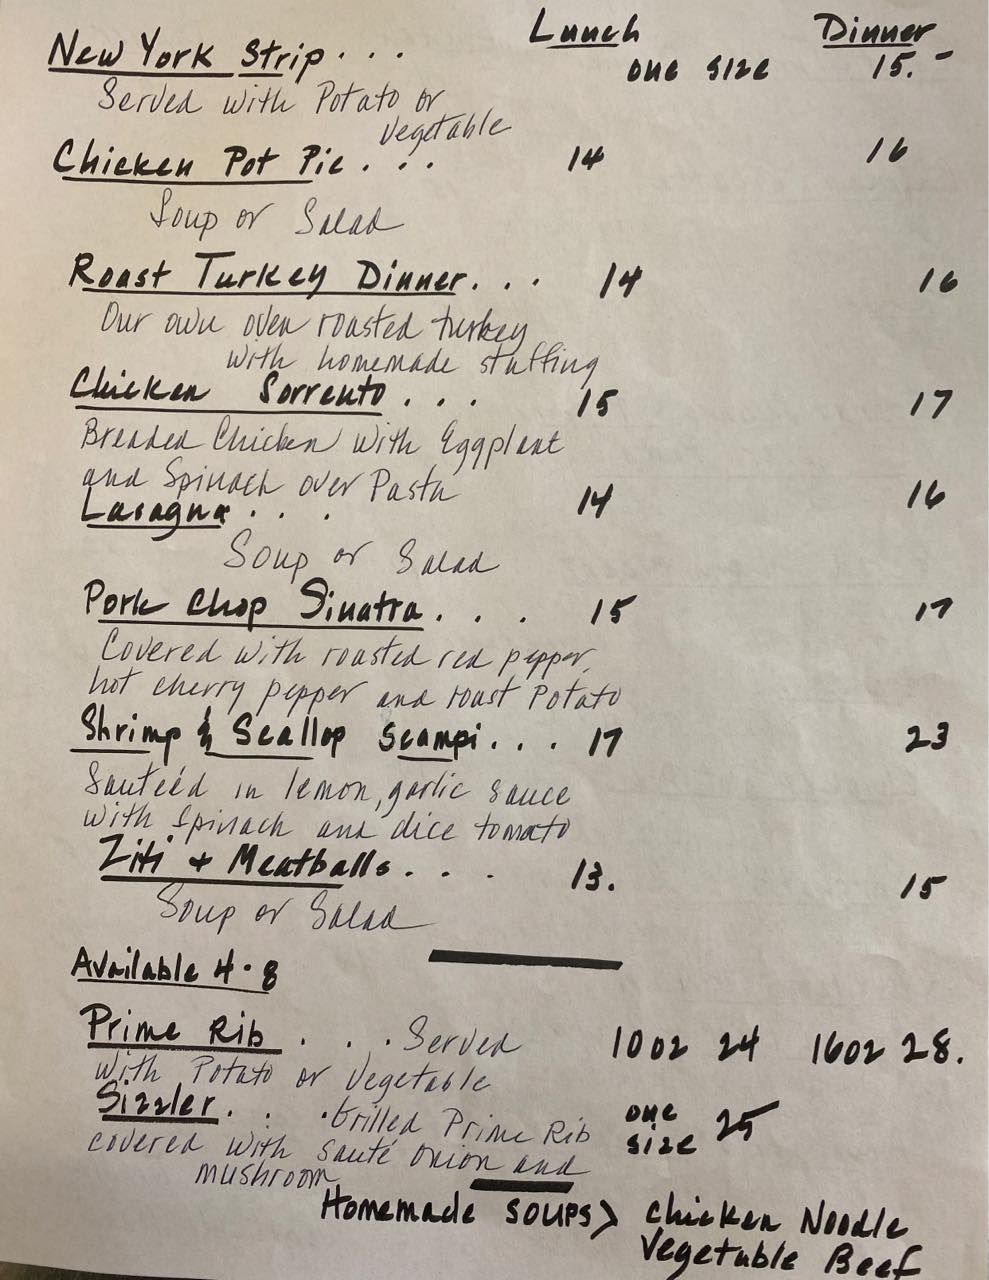 Lunch Dinner
New York Strip . . . one size 15.-
Served with Potato or
vegetable
Chicken Pot Pie . . . 14 16
Soup or Salad
Roast Turkey Dinner. . . 14 16
Our own oven roasted turkey
with homemade stuffing
Chicken Sorrento . . . 15 17
Breaded Chicken with Eggplant
and Spinach over Pasta
Lasagna . . . 14 16
Soup or Salad
Pork Chop Sinatra . . . 15 17
Covered with roasted red pepper,
hot cherry pepper and roast Potato
Shrimp & Scallop Scampi . . . 17 23
Sauteéd in lemon, garlic sauce
with spinach and dice tomato
Ziti + Meatballs . . . 13. 15
Soup or Salad
Available 4-8
Prime Rib . . . Served 10oz 24 16oz 28.
with Potato or Vegetable
Sizzler . . . Grilled Prime Rib one size 25
covered with sauté onion and
mushroom
Homemade soups > Chicken Noodle
Vegetable Beef